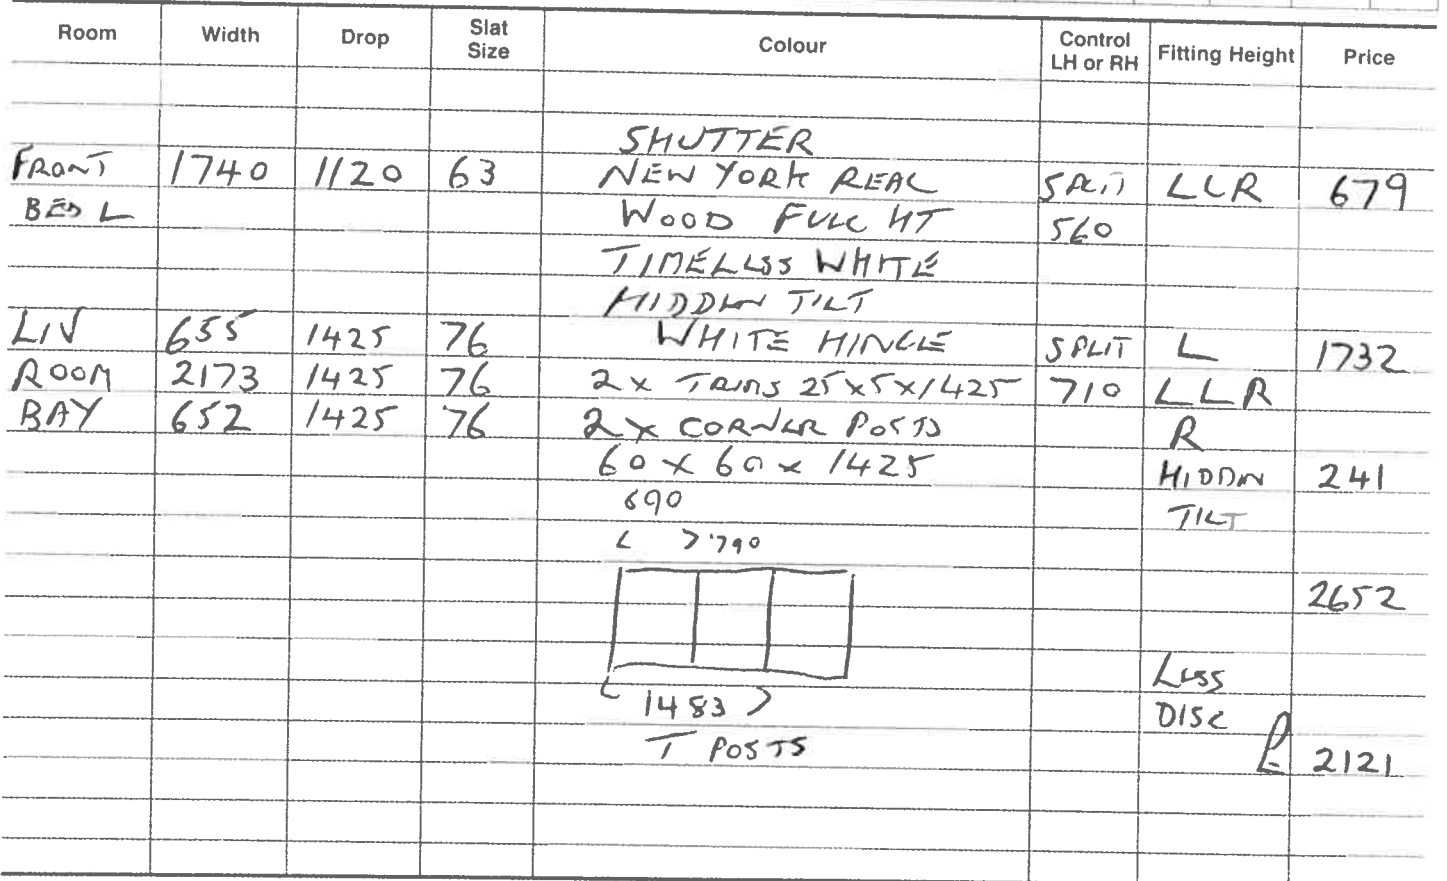 Room Width Drop Slat Size Colour Control LH or RH Fitting Height Price
SHUTTER
FRONT 1740 1120 63 NEW YORK REAL SPLIT LLR 679
BED L WOOD FULL HT 560
TIMELESS WHITE
HIDDEN TILT
LIV 655 1425 76 WHITE HINGE SPLIT L 1732
ROOM 2173 1425 76 2x TRIMS 25x5x1425 710 LLR
BAY 652 1425 76 2x CORNER POSTS R
60 x 60 x 1425 HIDDEN 241
690 TILT
< > 790
2652
LESS
< 1483 > DISC
T POSTS £ 2121